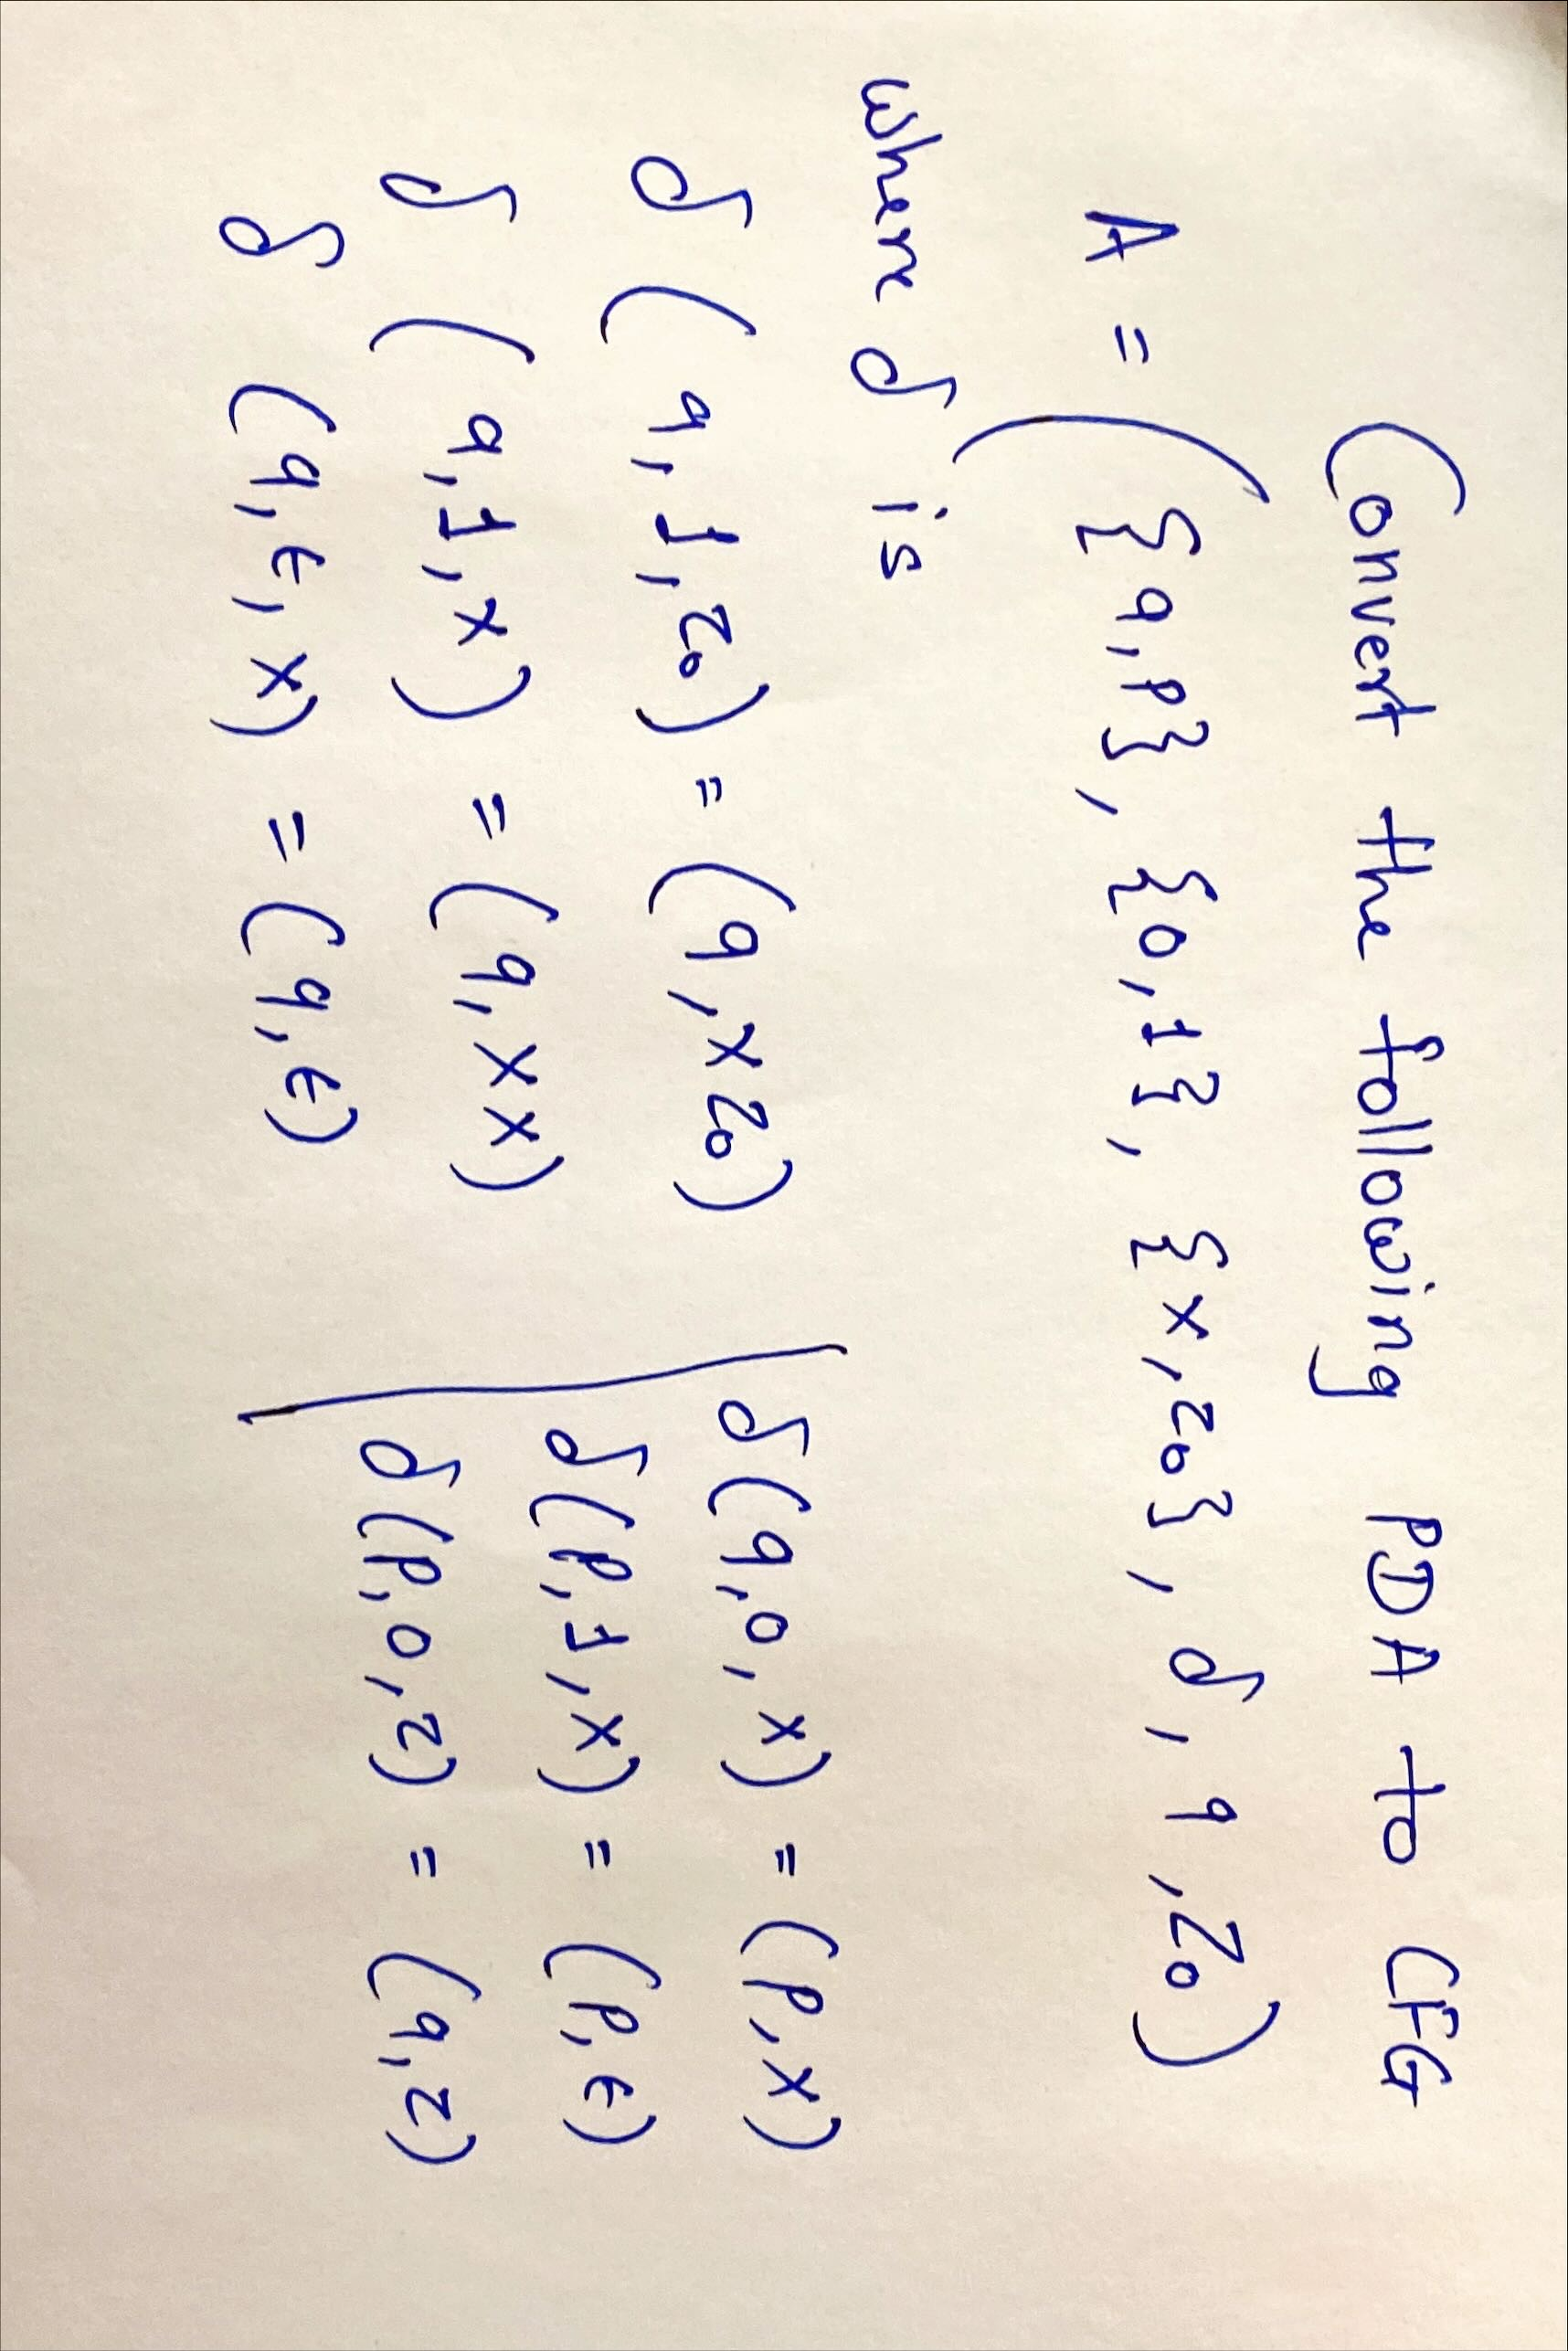 Convert the following PDA to CFG
A = ({q,p}, {0,1}, {x,z₀}, δ, q, z₀)
where δ is
δ (q, 1, z₀) = (q, x z₀)
δ (q, 1, x) = (q, x x)
δ (q, ε, x) = (q, ε)
δ(q, 0, x) = (p, x)
δ(p, 1, x) = (p, ε)
δ(p, 0, z) = (q, z)